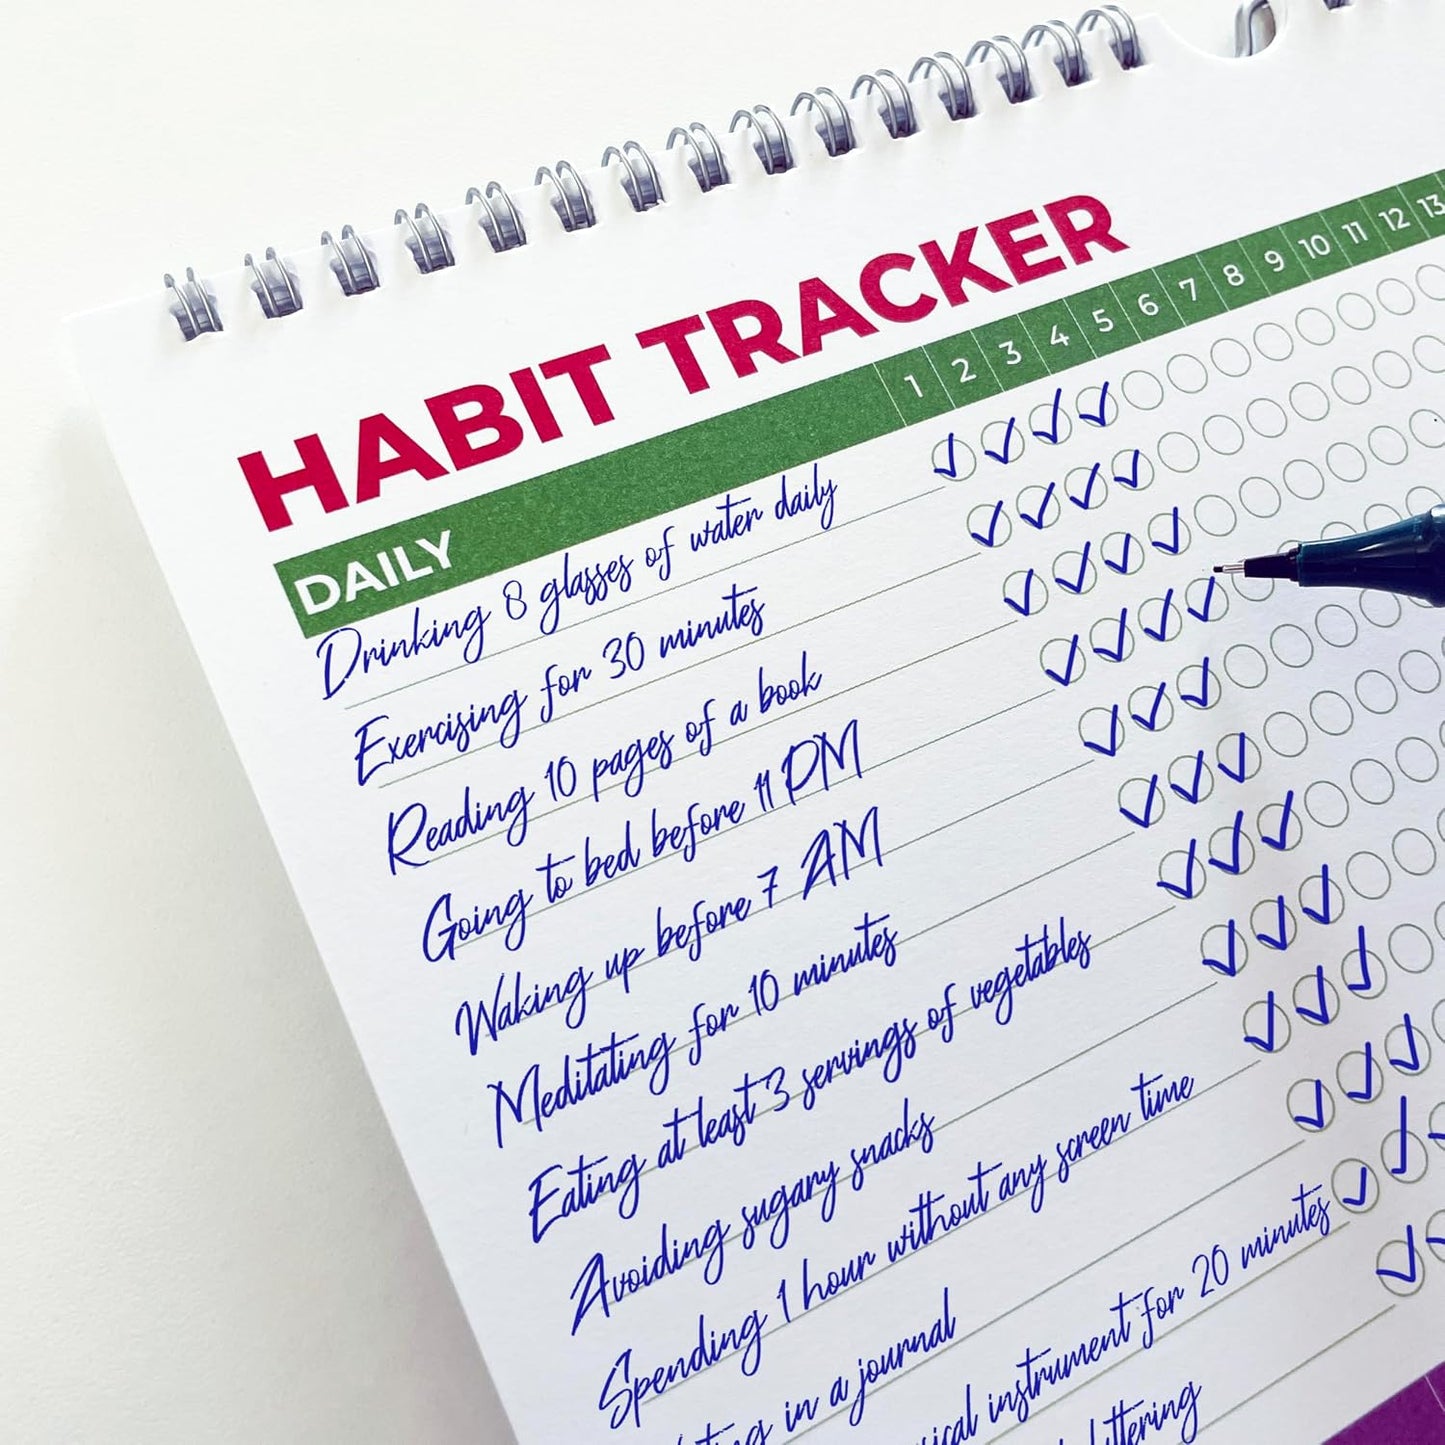 HABIT TRACKER
DAILY 1 2 3 4 5 6 7 8 9 10 11 12 13
Drinking 8 glasses of water daily
Exercising for 30 minutes
Reading 10 pages of a book
Going to bed before 11 PM
Waking up before 7 AM
Meditating for 10 minutes
Eating at least 3 servings of vegetables
Avoiding sugary snacks
Spending 1 hour without any screen time
in a journal
instrument for 20 minutes